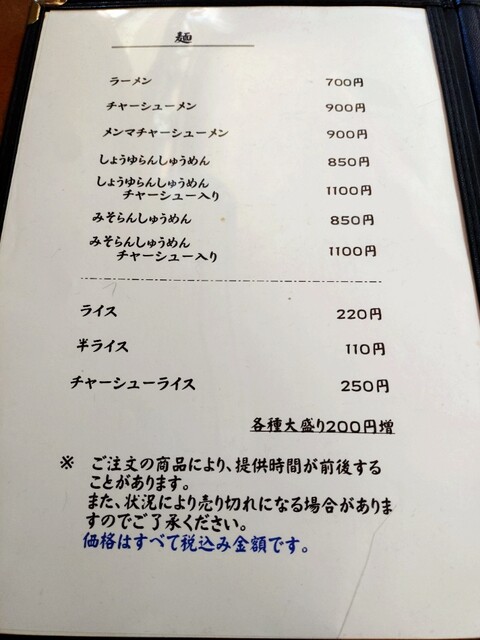 麺
ラーメン 700円
チャーシューメン 900円
メンマチャーシューメン 900円
しょうゆらんしゅうめん 850円
しょうゆらんしゅうめん
チャーシュー入り 1100円
みそらんしゅうめん 850円
みそらんしゅうめん
チャーシュー入り 1100円
ライス 220円
半ライス 110円
チャーシューライス 250円
各種大盛り200円増
※ ご注文の商品により、提供時間が前後する
ことがあります。
また、状況により売り切れになる場合がありま
すのでご了承ください。
価格はすべて税込み金額です。